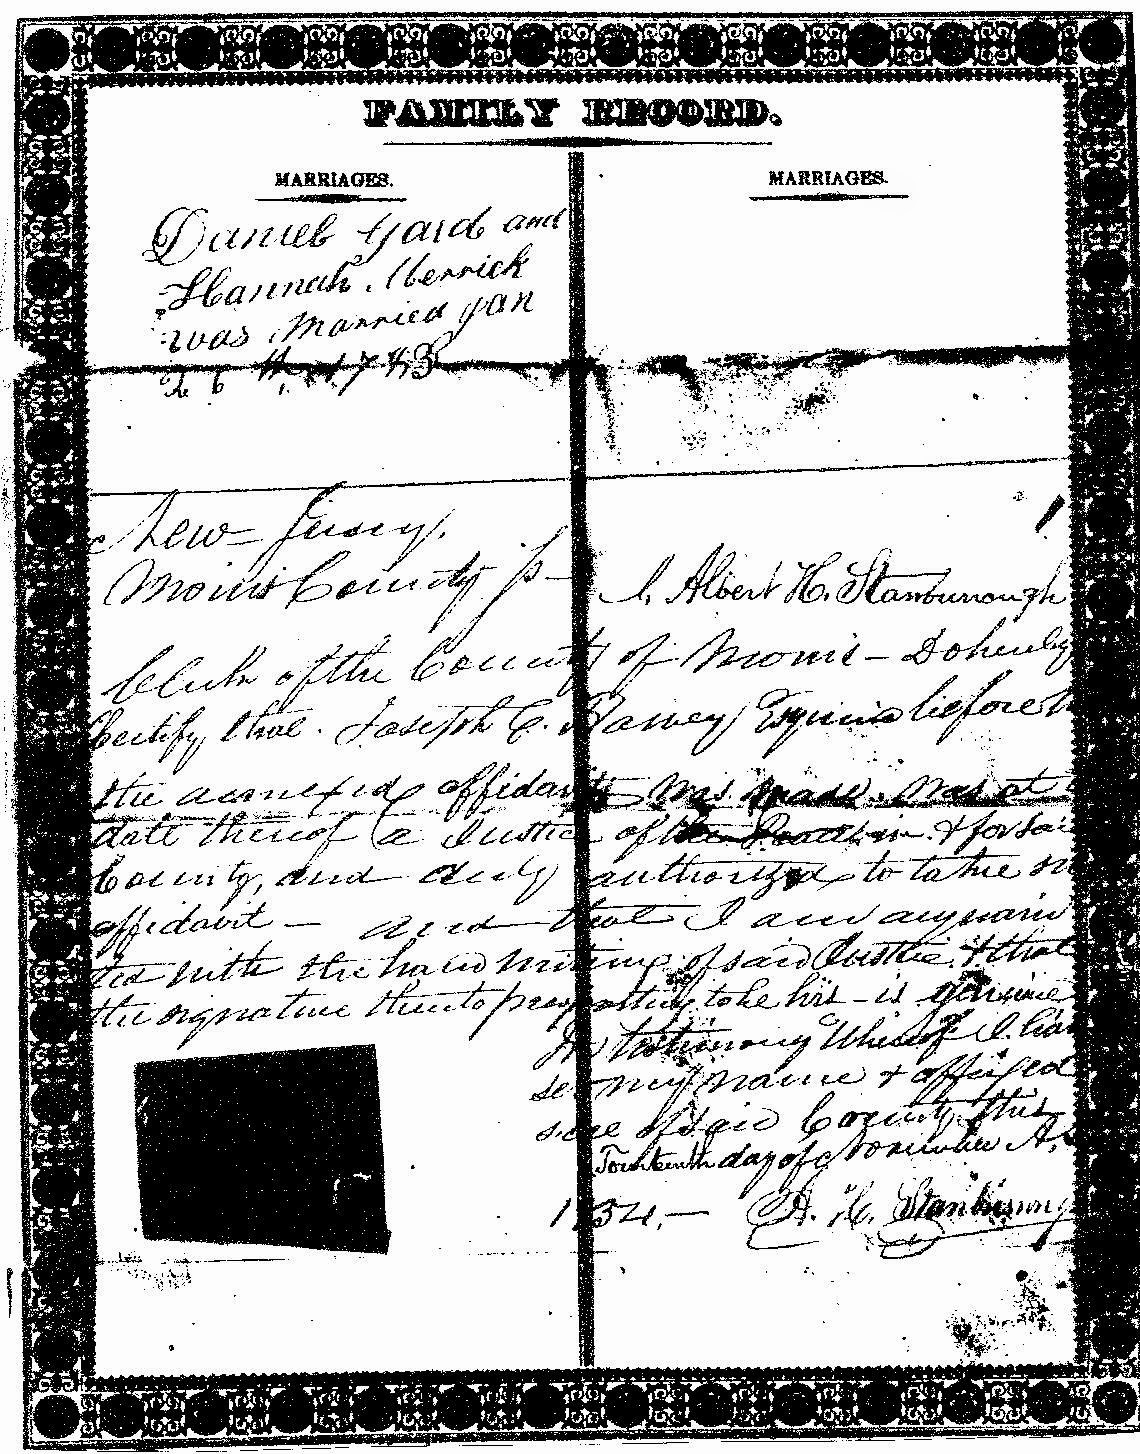 FAMILY RECORD.
MARRIAGES.
MARRIAGES.
Daniel Gard and
Hannah Merrick
was Married Jan
26 th 1783
New Jersey,
Morris County ss—
I, Albert H. Stanburrough
Clerk of the County of Morris — Do hereby
Certify that Joseph C. Harvey Esquire before
the annexed affidavit was made. was at
date thereof a Justice of the Peace in & for Sai
County, and duly authorized to take su
affidavit — and that I am acquain
ted with the hand writing of said Justice & that
the signature thereto purporting to be his — is genuine
In testimony Whereof I ha
set my name & affixed
seal of said County this
Fourteenth day of November A.
1834.— A. H. Stanburroug